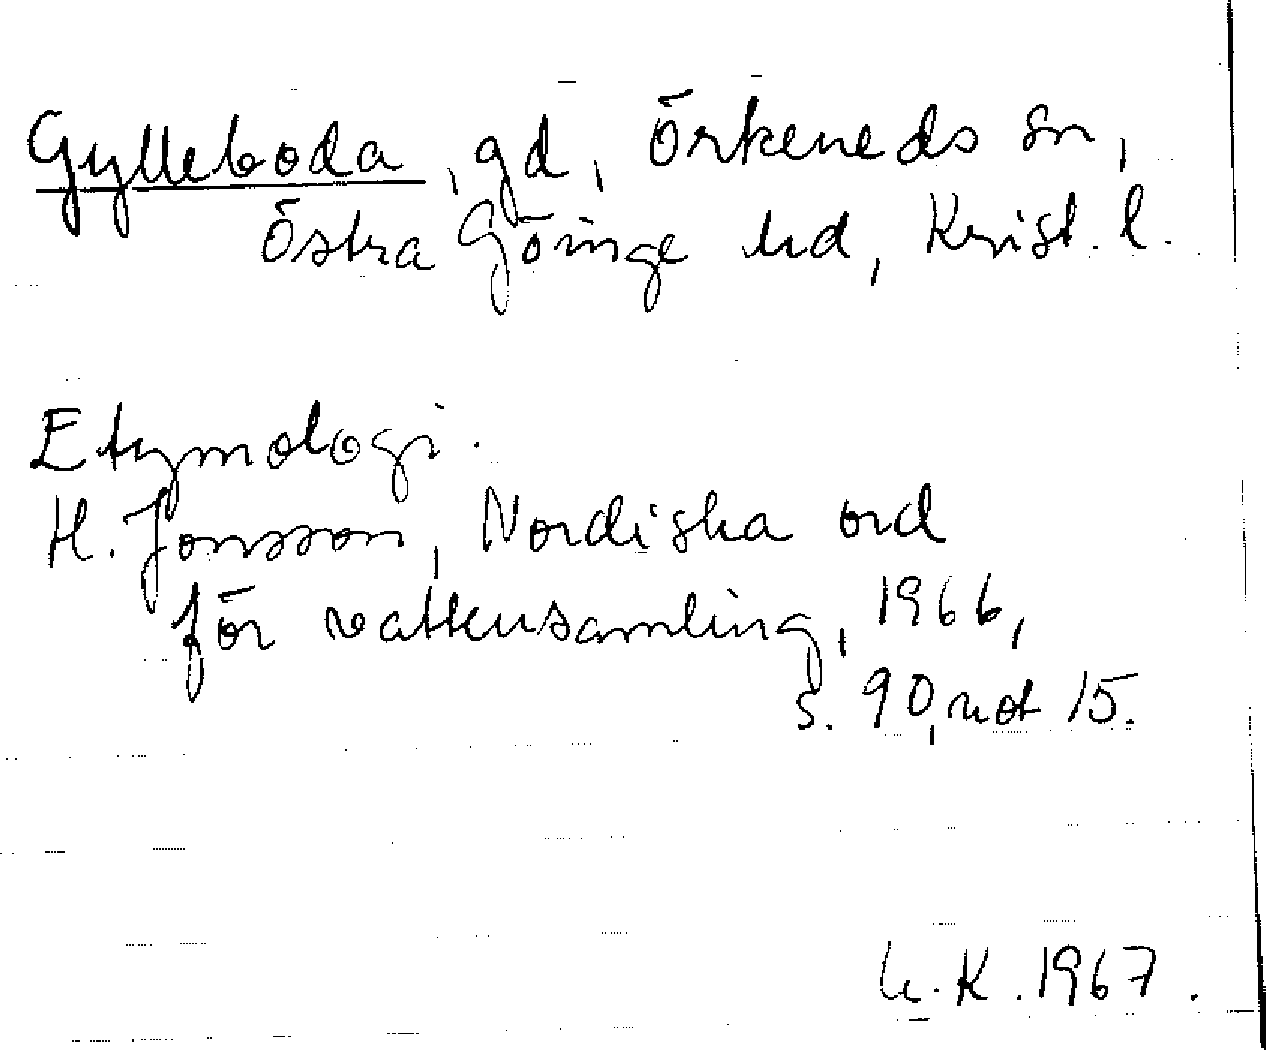 Gylleboda, gd, Örkeneds sn,
Östra Göinge hd, Krist. l.
Etymologi.
H. Jonsson, Nordiska ord
för vattensamling, 1966,
s. 90, not 15.
K. 1967.